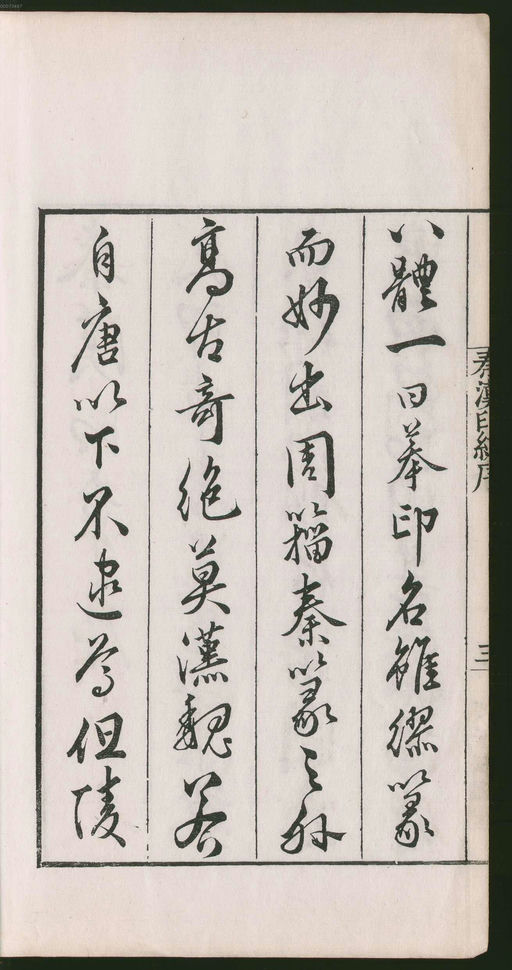 八體一曰摹印名雖繆篆
而妙出周籀秦篆之外
高古奇絶莫漢魏若
自唐以下不逮焉但陵
秦漢印統序
三